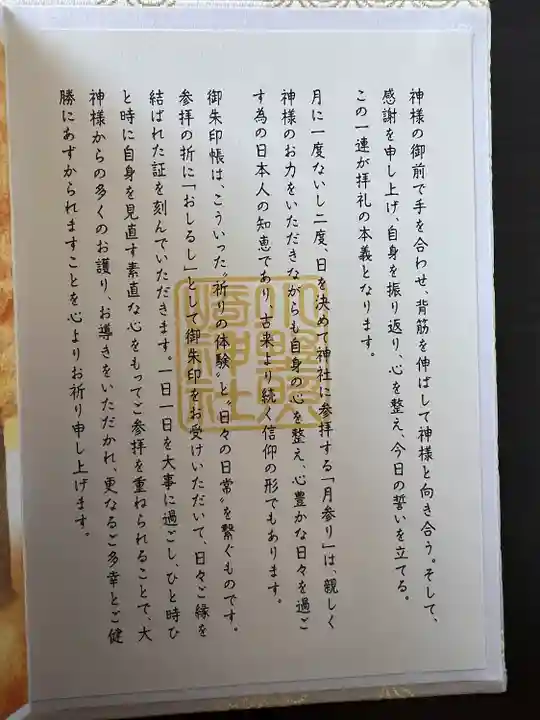 神様の御前で手を合わせ、背筋を伸ばして神様と向き合う。そして、
感謝を申し上げ、自身を振り返り、心を整え、今日の誓いを立てる。
この一連が拝礼の本義となります。
月に一度ないし二度、日を決めて神社に参拝する「月参り」は、親しく
神様のお力をいただきながらも自身の心を整え、心豊かな日々を過ご
す為の日本人の知恵であり、古来より続く信仰の形でもあります。
御朱印帳は、こういった“祈りの体験”と“日々の日常”を繋ぐものです。
参拝の折に「おしるし」として御朱印をお受けいただいて、日々ご縁を
結ばれた証を刻んでいただきます。一日一日を大事に過ごし、ひと時ひ
と時に自身を見直す素直な心をもってご参拝を重ねられることで、大
神様からの多くのお護り、お導きをいただかれ、更なるご多幸とご健
勝にあずかられますことを心よりお祈り申し上げます。
小野照
崎神社